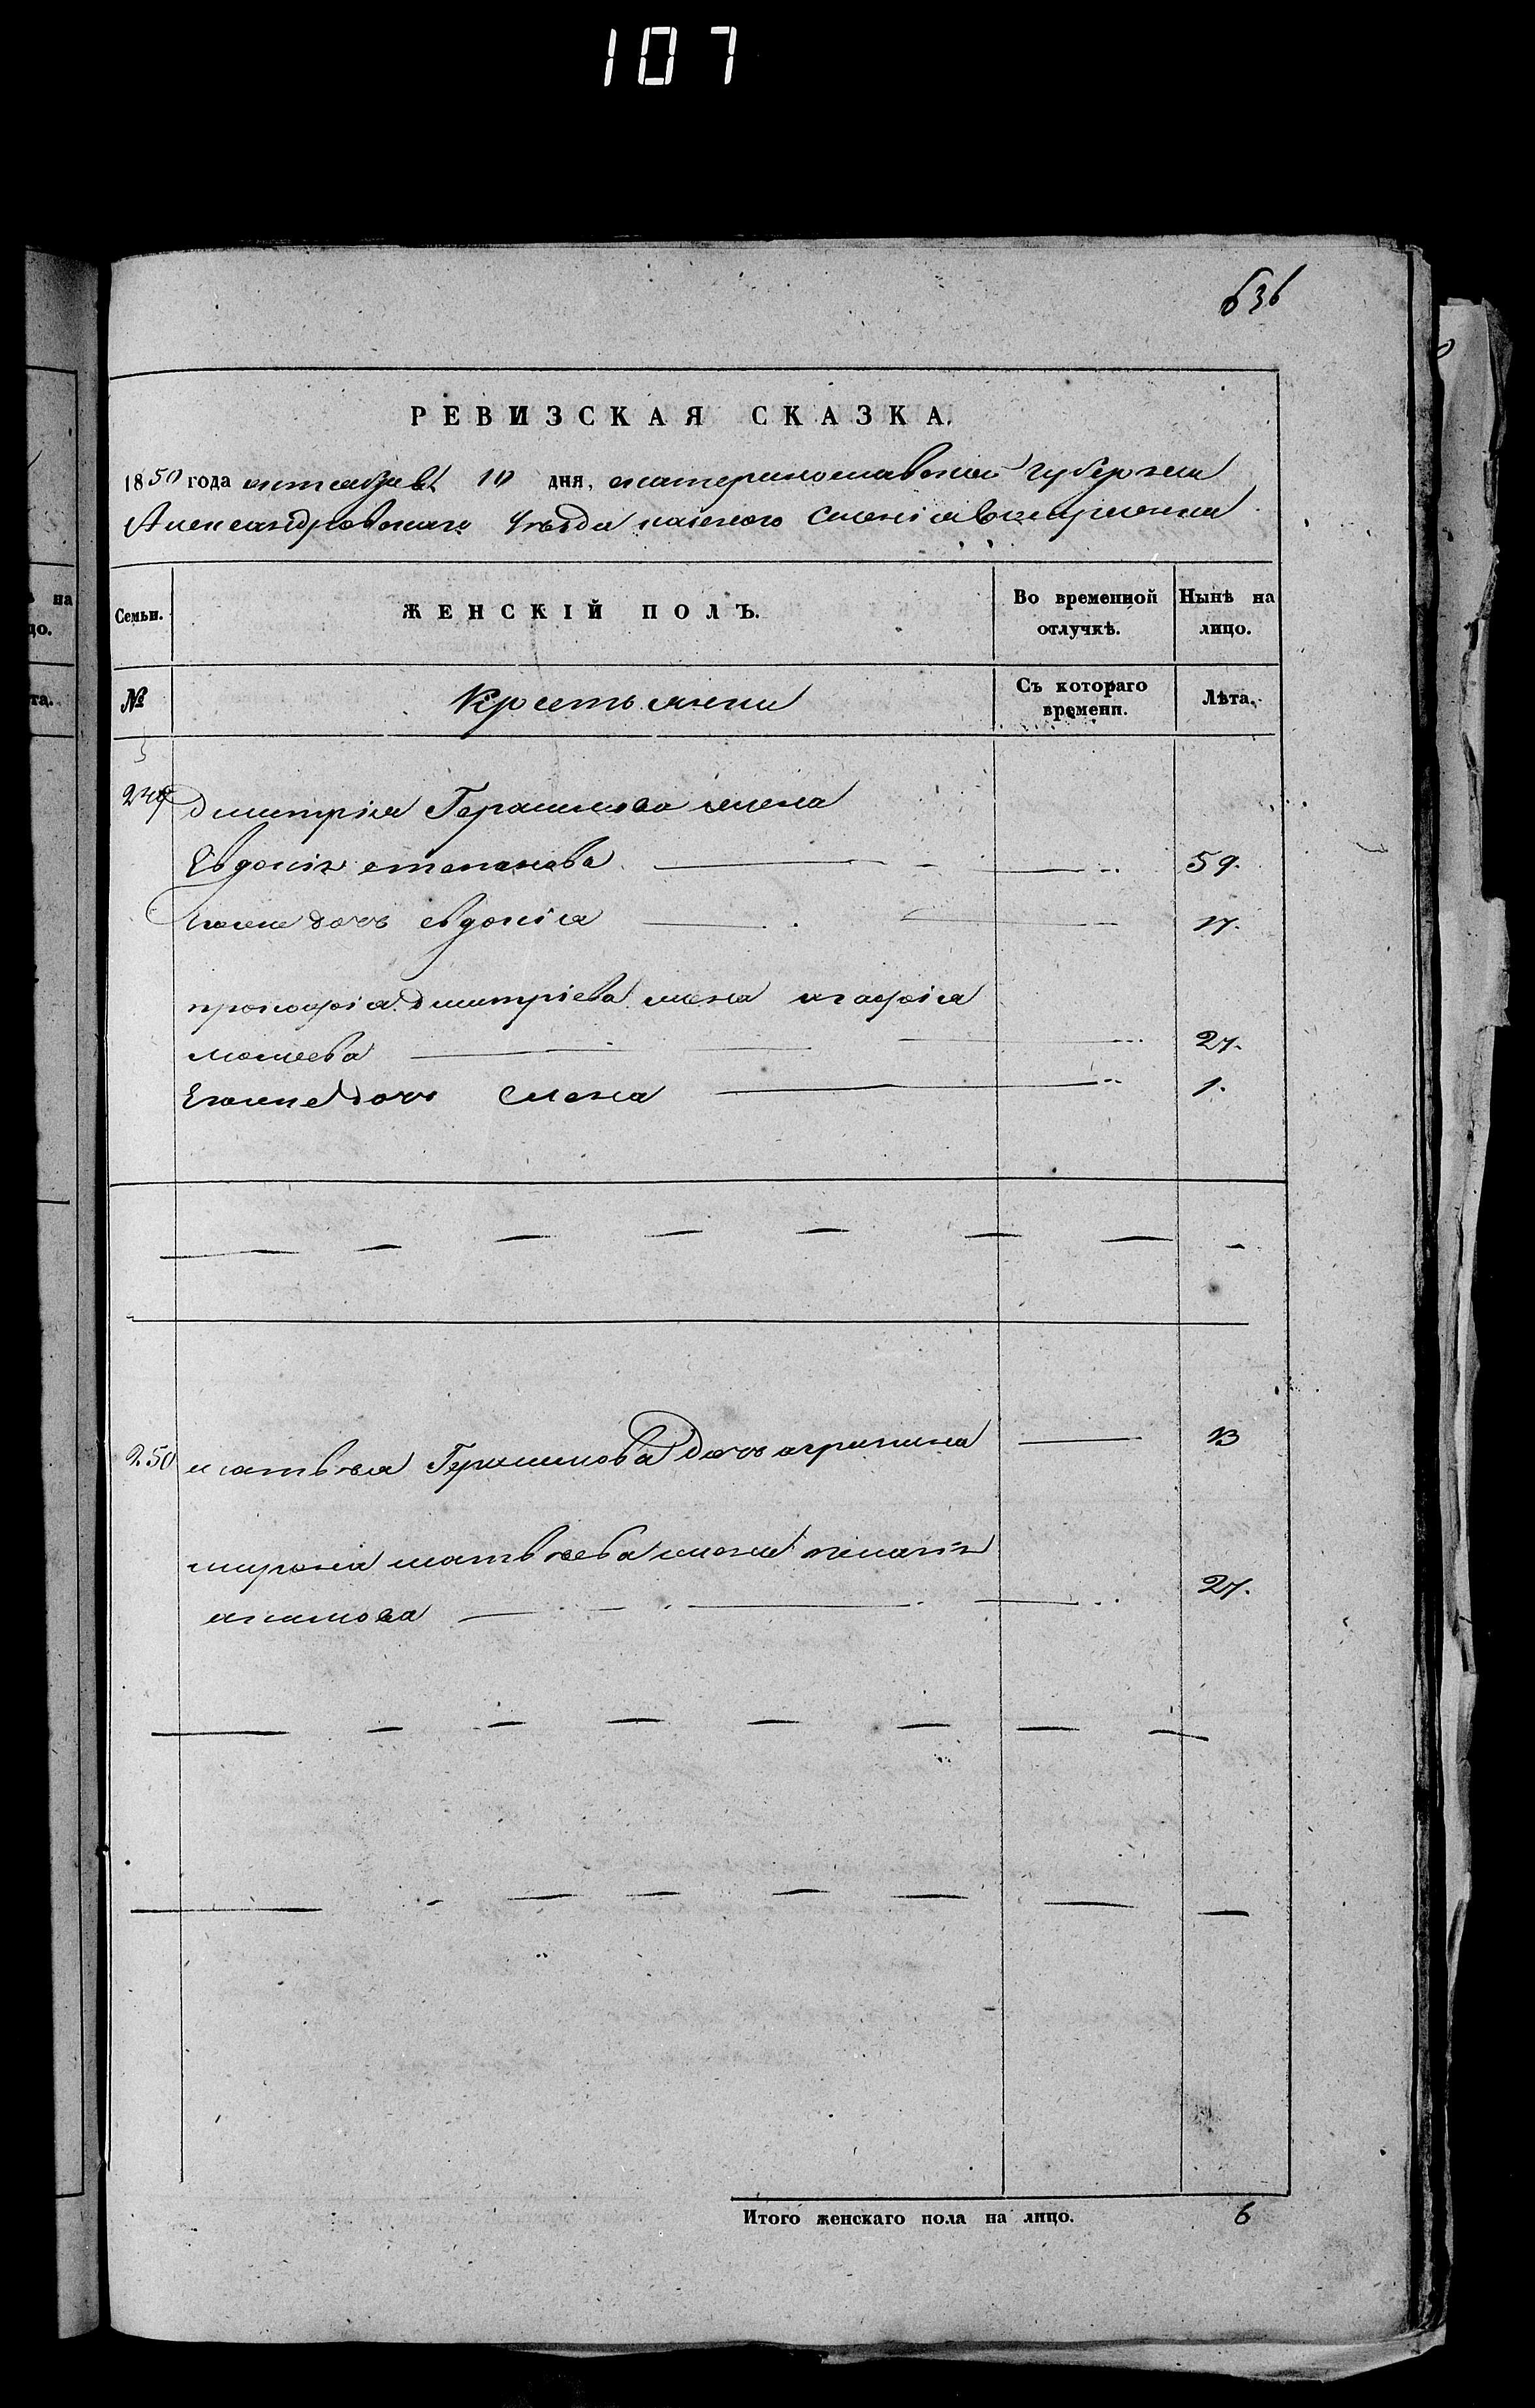 107
636
РЕВИЗСКАЯ СКАЗКА.
1850 года октября 10 дня, екатеринославской губернии
Александровского уѣзда казеного Селенія
на
цо.
та.
Семьи.
ЖЕНСКІЙ ПОЛЪ.
Во временной отлучкѣ.
Нынѣ на лицо.
№
Крестьянки
Съ котораго времени.
Лѣта.
249
дмитрія Герасимова жена
Евдокія степанова 59.
Егоже дочь евдокія 17.
прокофія дмитріева жена агафія
мосеева 27.
Егоже дочь Елена 1.
250
матвѣя Герасимова дочь агрипина 13
мирона матвѣева жена пелагія
акимова 27.
Итого женскаго пола на лицо. 6